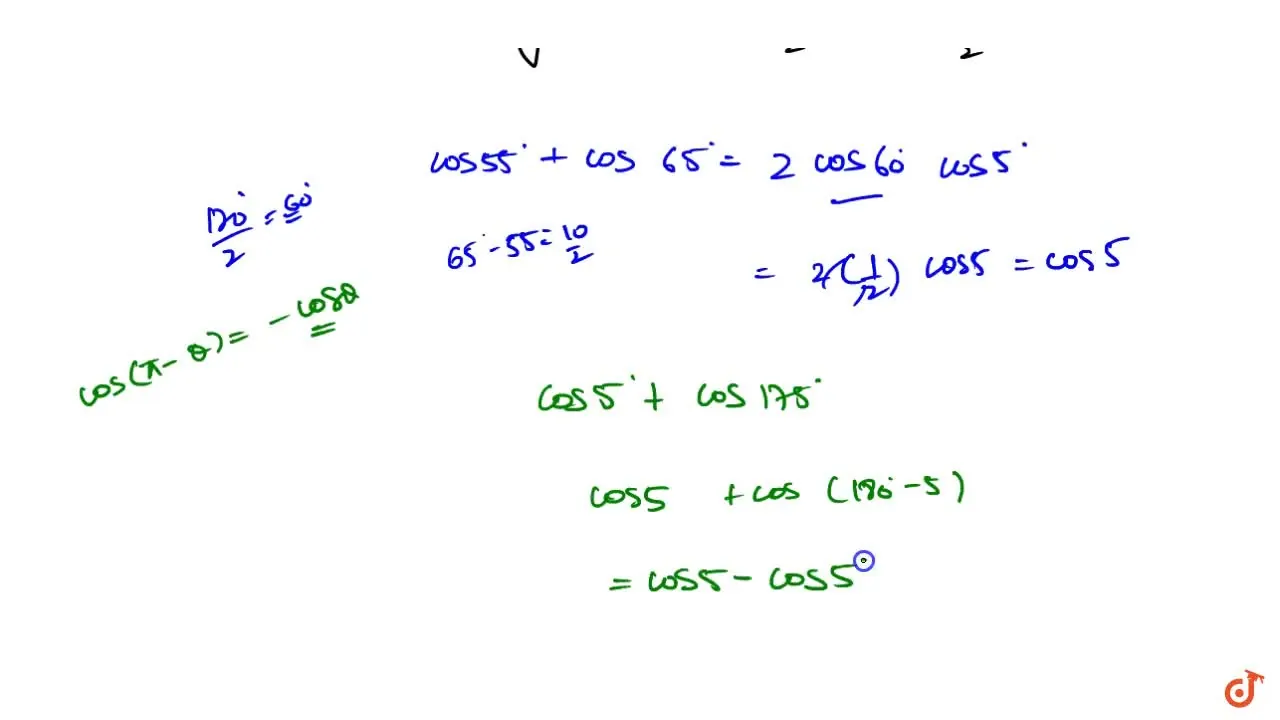 cos55° + cos 65° = 2 cos60° cos5°
120°/2 = 60°
65° - 55 = 10/2
= 2(1/2) cos5 = cos5
cos(π - θ) = - cosθ
cos5° + cos 175°
cos5 + cos (180° - 5)
= cos5 - cos5°